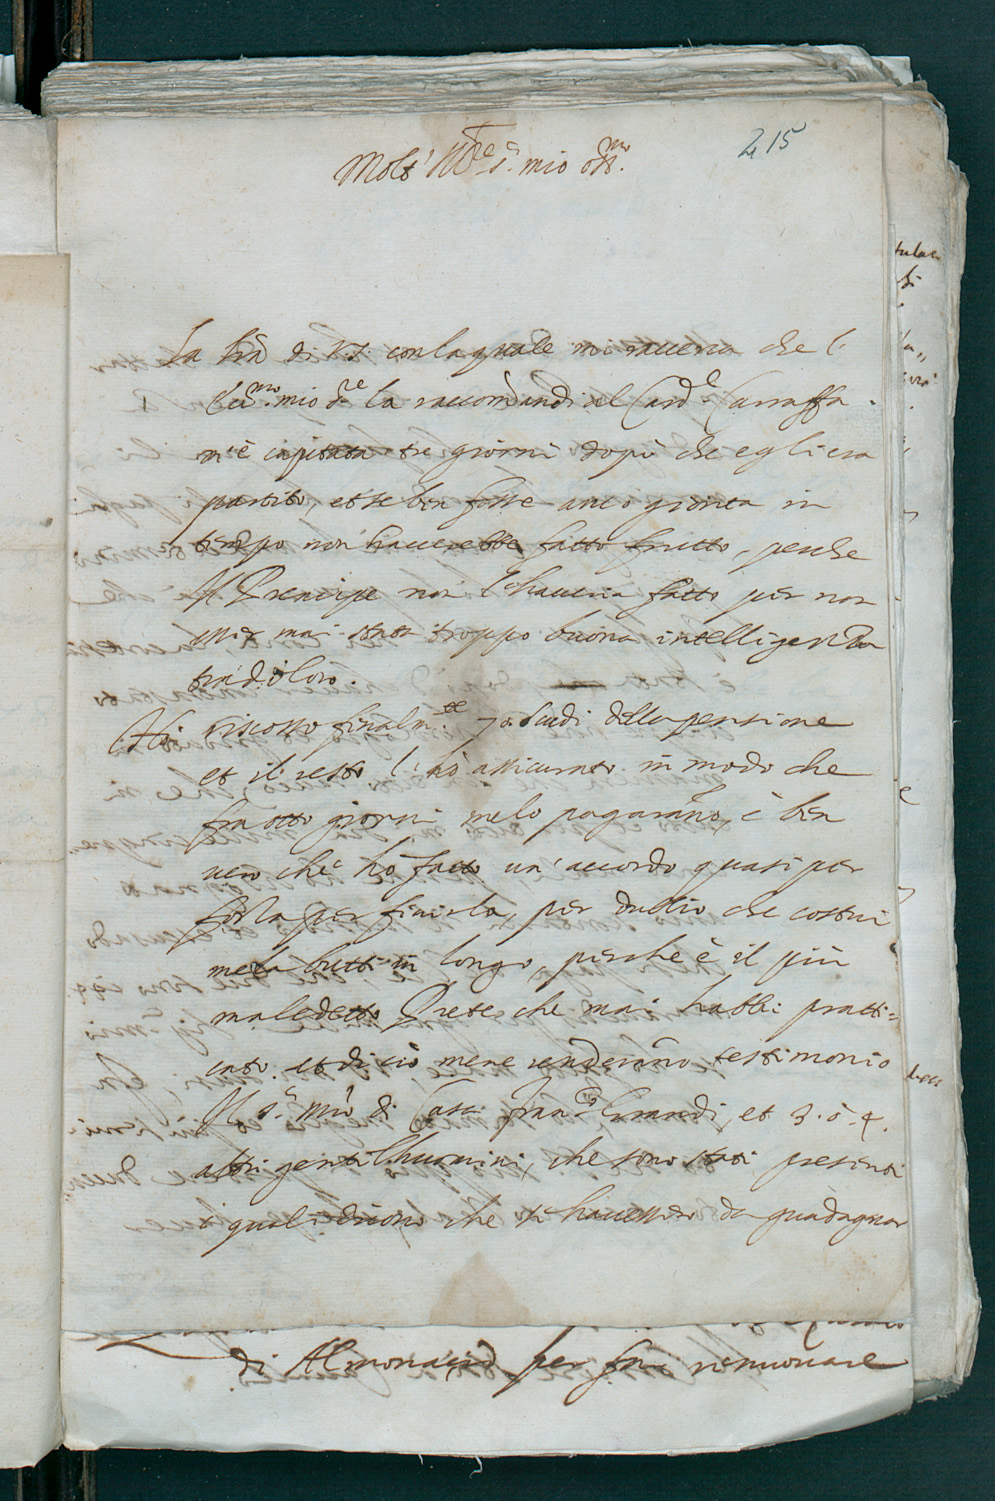 215
Molt' Ill.re s.r mio oss.mo
La l'ra di V.S. con la quale mi ricerca che l'
Ecc.mo mio S.re la raccomandi al Card.le Carraffa
m'è capitata tre giorni dopò che egli era
partito, et se ben fosse anco gionta in
tempo non haverebbe fatto frutto, perche
Il Prencipe non l'haveria fatto per non
esser mai stata troppo buona intelligenza
frà di loro.
Hò riscosso finalm.te 70 scudi della pensione
et il resto l'hò assicurato in modo che
frà otto giorni me lo pagarano, è ben
vero che hò fatto un' accordo quasi per
forza per finirla, per dubio che costui
me la butti in longo, perche è il più
maledetto Prete che mai habbi pratti=
cato. et di ciò me ne renderano testimonio
Il s.r di Fran.co Grandi, et 3. ò 4.
altri gentilhuomini, che sono stati presenti
i quali dicono che s'havesser da guadagnar
di Almonacid per far rinnovare